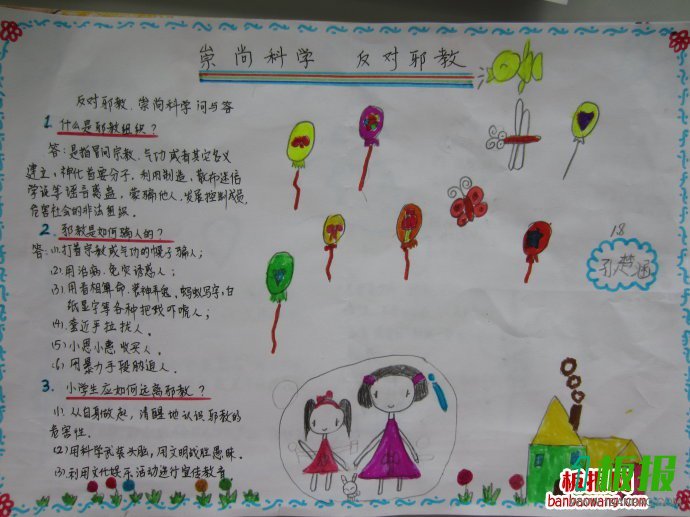 崇尚科学 反对邪教
反对邪教、崇尚科学问与答
1. 什么是邪教组织？
答：是指冒用宗教、气功或者其它名义
建立，神化首要分子，利用制造、散布迷信
学说等谣言蛊惑、蒙骗他人，发展控制成员，
危害社会的非法组织。
2. 邪教是如何骗人的？
答：(1).打着宗教或气功的幌子骗人；
(2).用治病、免灾诱惑人；
(3).用看相算命、装神弄鬼、蚂蚁写字，白
纸显字等各种把戏吓唬人；
(4).套近乎拉拢人。
(5).小恩小惠收买人。
(6).用暴力手段胁迫人。
3. 小学生应如何远离邪教？
(1).从自身做起，清醒地认识邪教的
危害性。
(2).用科学武装头脑，用文明战胜愚昧。
(3).利用文化娱乐活动进行宣传教育
18
孔楚涵
板报
banbaowang.com